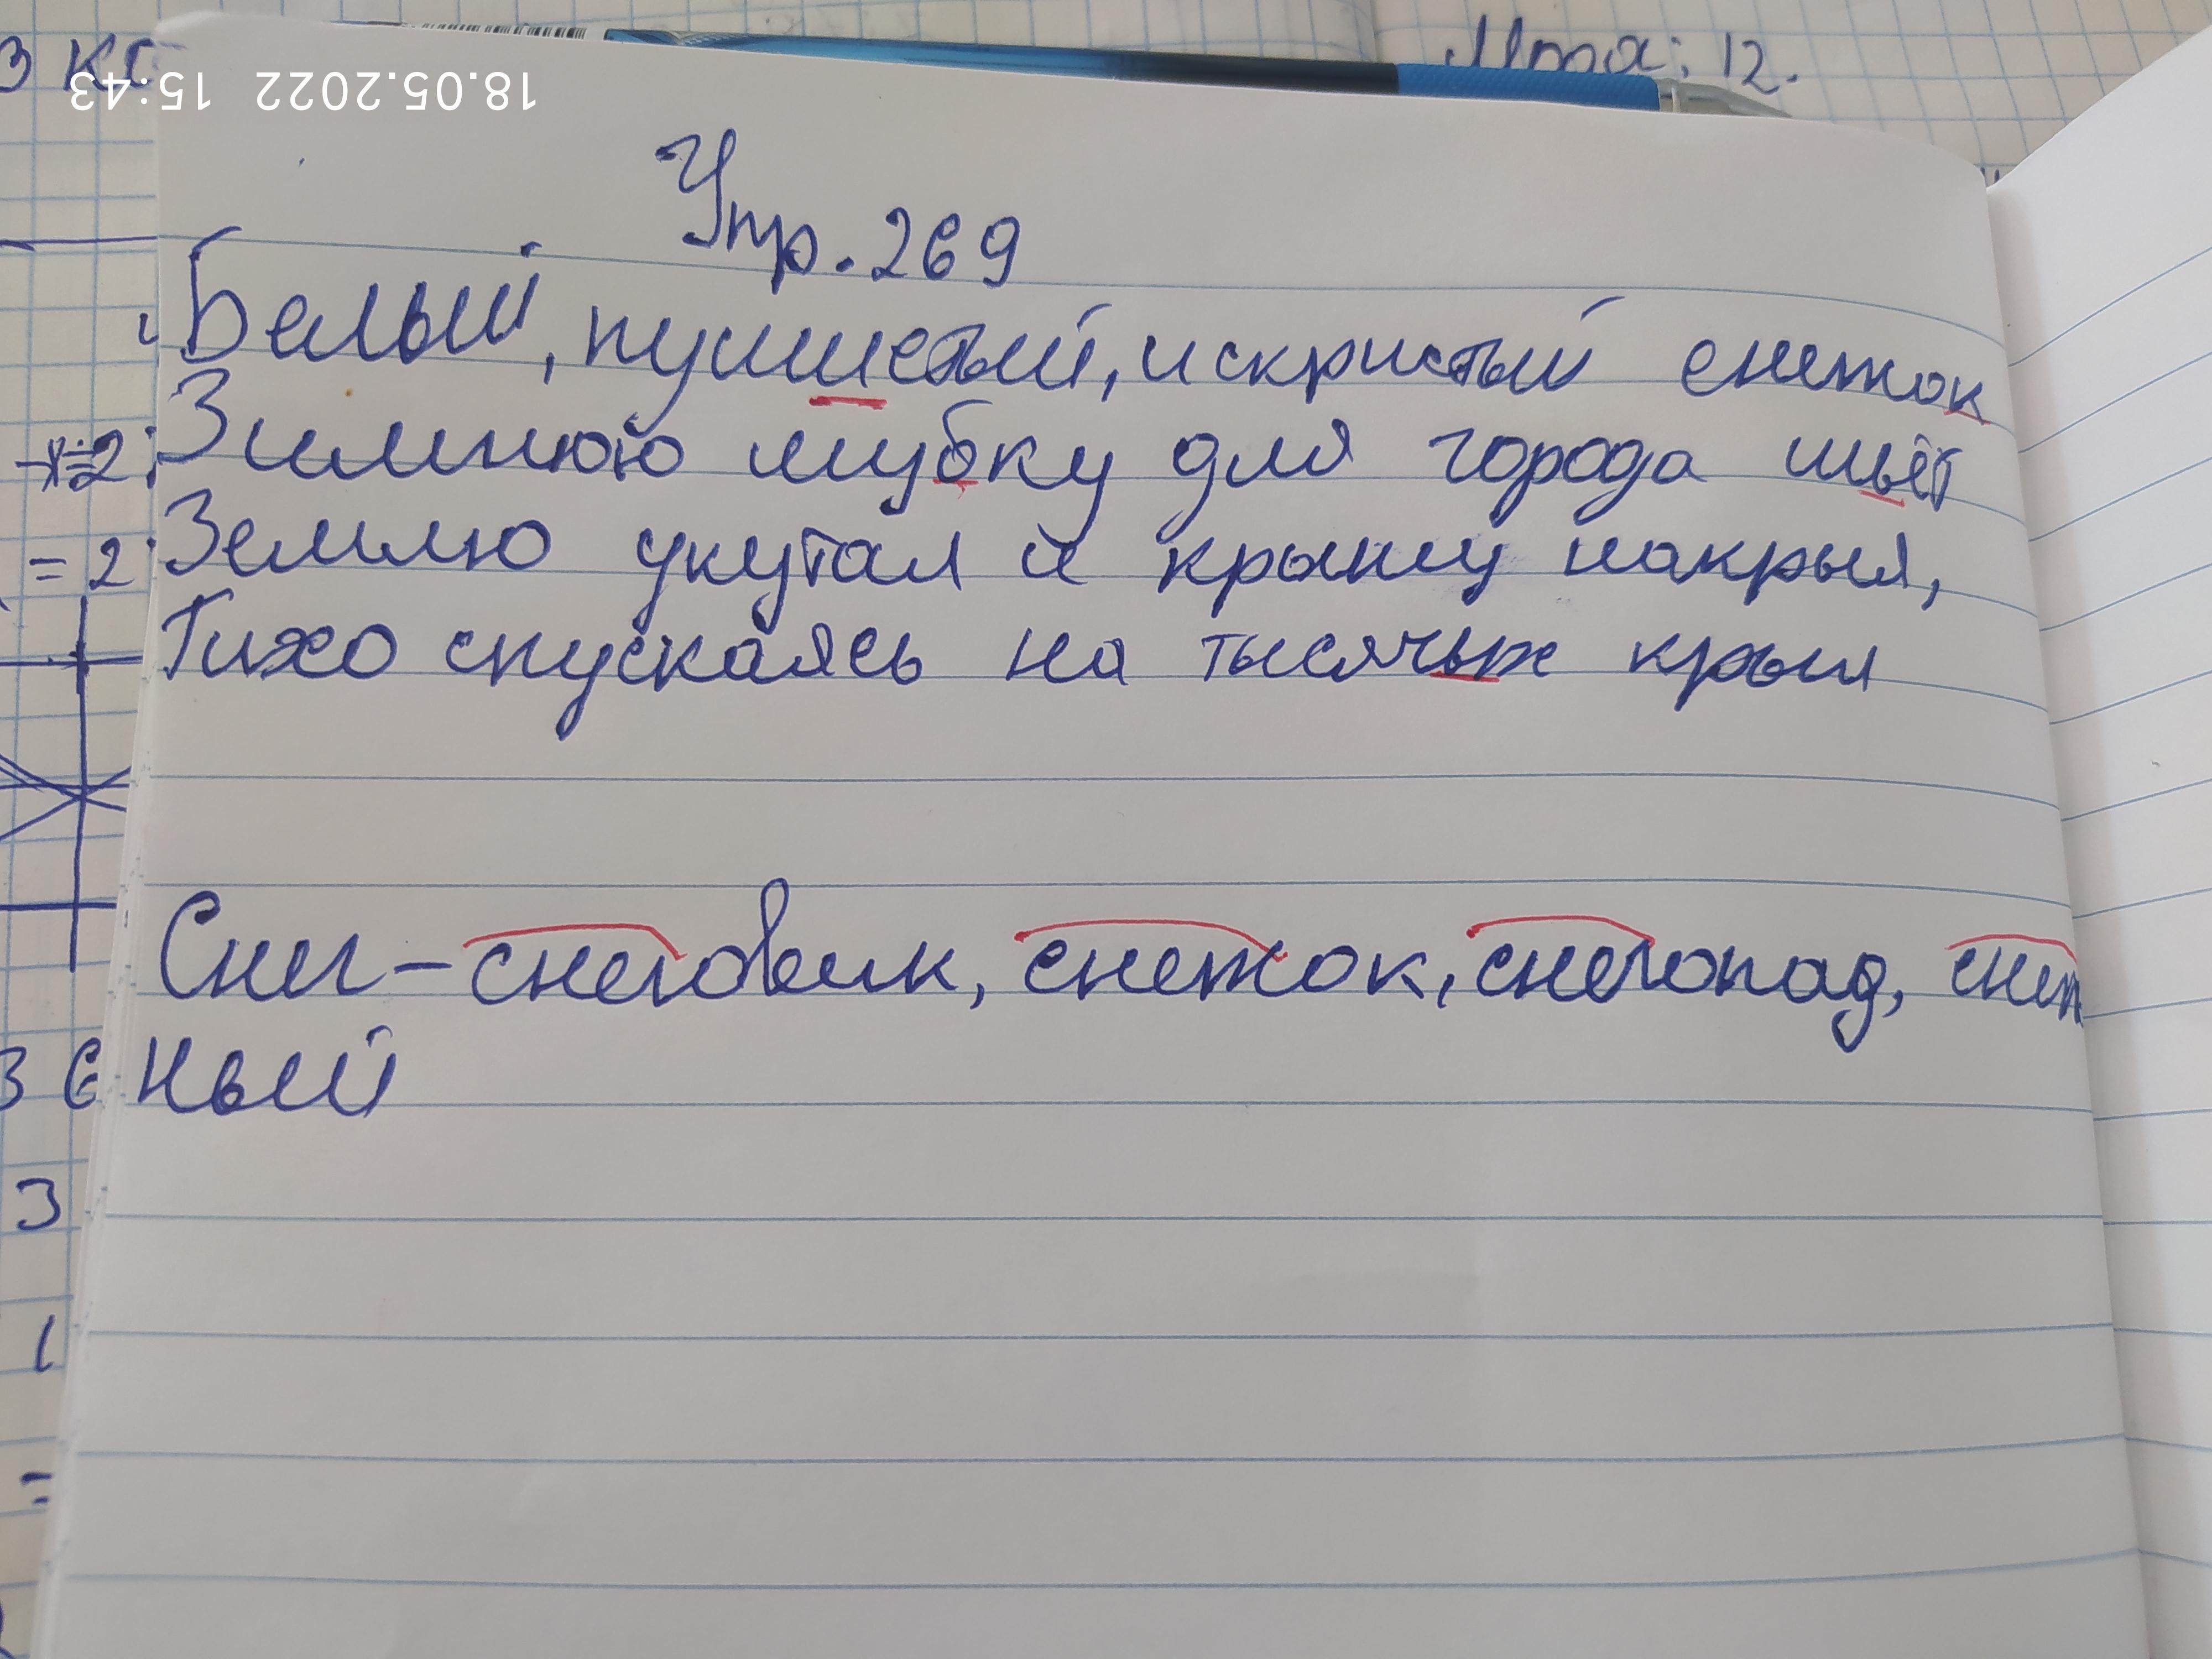 18.05.2022 15:43
Ответ: 12.
Упр. 269
Белый, пушистый, искристый снежок
Зимнюю шубку для города шьёт
Землю укутал и крышу накрыл,
Тихо спускаясь на тысячах крыл
Снег - снеговик, снежок, снегопад, снеж
ный